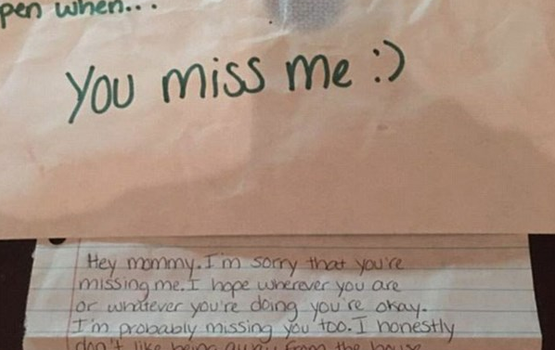 pen when...
You miss me :)
Hey mommy. I'm sorry that you're
missing me. I hope wherever you are
or whatever you're doing you're okay.
I'm probably missing you too. I honestly
don't like being away from the house